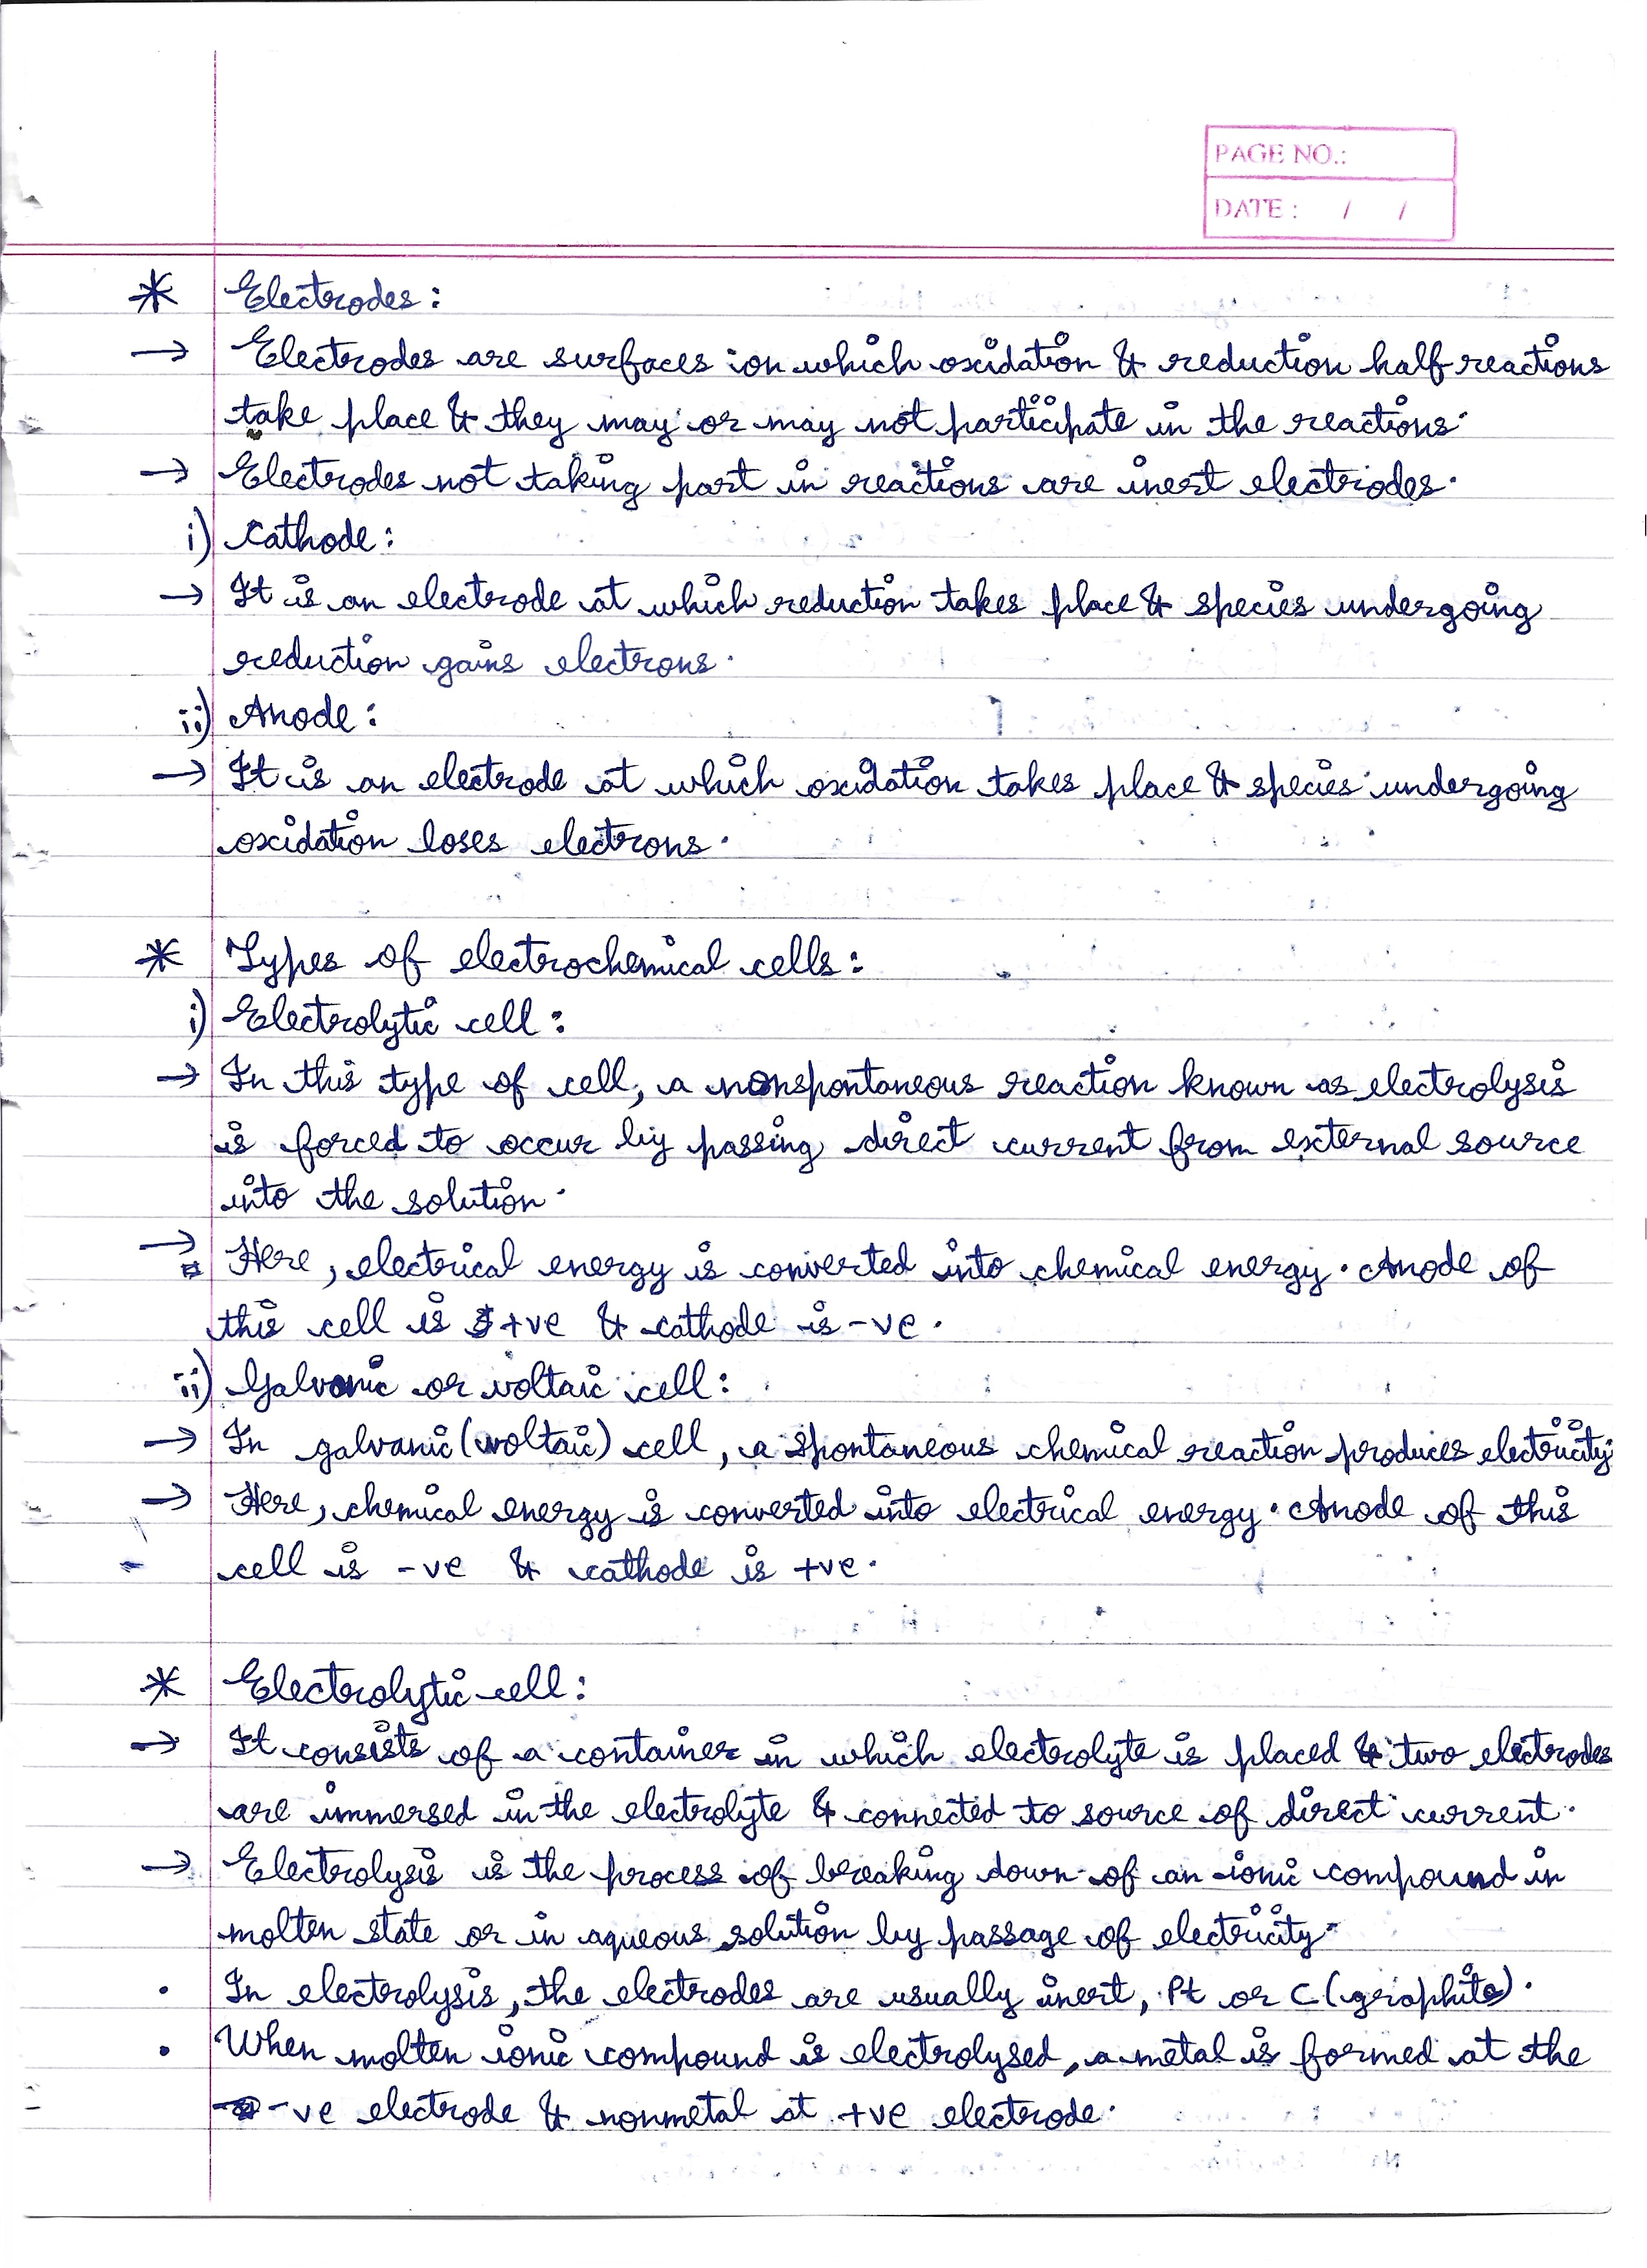 PAGE NO.:
DATE : / /
* Electrodes :
→ Electrodes are surfaces on which oxidation & reduction half reactions
take place & they may or may not participate in the reactions.
→ Electrodes not taking part in reactions are inert electrodes.
i) Cathode :
→ It is an electrode at which reduction takes place & species undergoing
reduction gains electrons.
ii) Anode :
→ It is an electrode at which oxidation takes place & species undergoing
oxidation loses electrons.
* Types of electrochemical cells :
i) Electrolytic cell :
→ In this type of cell, a nonspontaneous reaction known as electrolysis
is forced to occur by passing direct current from external source
into the solution.
→ Here, electrical energy is converted into chemical energy. Anode of
this cell is +ve & cathode is -ve.
ii) Galvanic or voltaic cell :
→ In galvanic (voltaic) cell, a spontaneous chemical reaction produces electricity.
→ Here, chemical energy is converted into electrical energy. Anode of this
cell is -ve & cathode is +ve.
* Electrolytic cell :
→ It consists of a container in which electrolyte is placed & two electrodes
are immersed in the electrolyte & connected to source of direct current.
→ Electrolysis is the process of breaking down of an ionic compound in
molten state or in aqueous solution by passage of electricity.
• In electrolysis, the electrodes are usually inert, Pt or C (graphite).
• When molten ionic compound is electrolysed, a metal is formed at the
-ve electrode & nonmetal at +ve electrode.